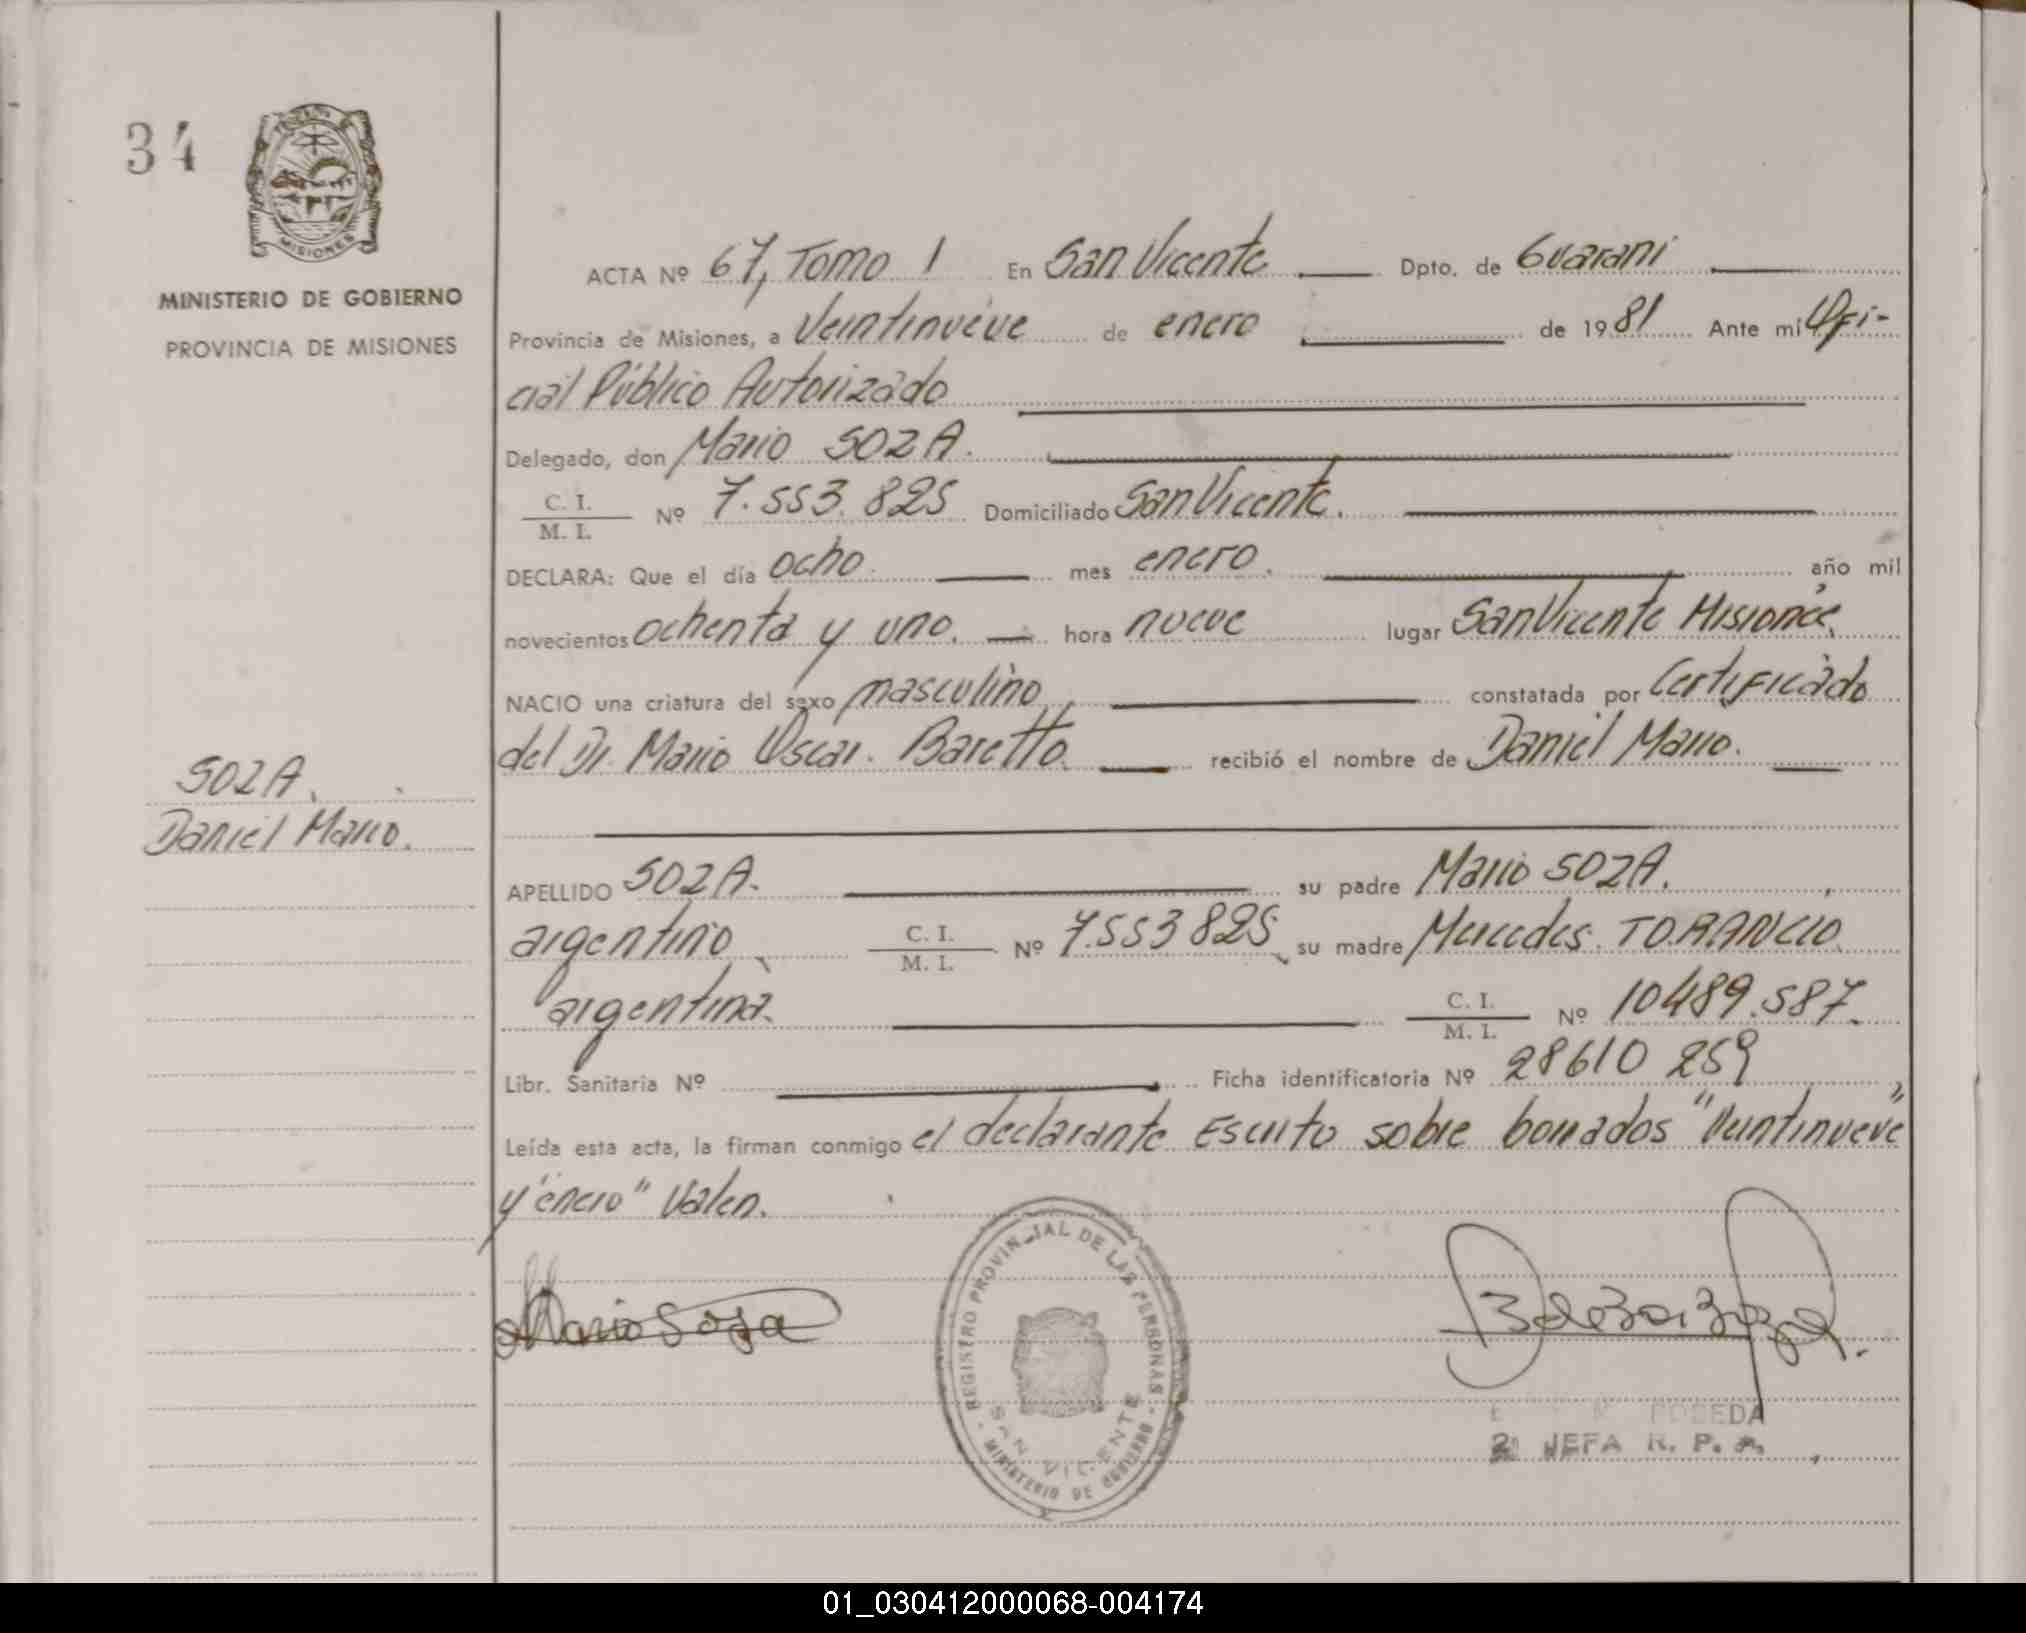 34
MISIONES
MINISTERIO DE GOBIERNO
PROVINCIA DE MISIONES
SOZA.
Daniel Mario.
ACTA Nº 67, Tomo 1 En San Vicente Dpto. de Guarani
Provincia de Misiones, a Veintinueve de enero de 1981 Ante mi Ofi-
cial Público Autorizado
Delegado, don Mario SOZA.
C. I.
M. I. Nº 7.553.825 Domiciliado San Vicente.
DECLARA: Que el día ocho mes enero. año mil
novecientos ochenta y uno. hora nueve lugar San Vicente Misiones
NACIO una criatura del sexo masculino constatada por Certificado
del Dr. Mario Oscar. Baretto. recibió el nombre de Daniel Mario.
APELLIDO SOZA. su padre Mario SOZA,
argentino, C. I.
M. I. Nº 7.553825, su madre Mercedes. TORANCIO
argentina. C. I.
M. I. Nº 10489.587.
Libr. Sanitaria Nº Ficha identificatoria Nº 28610 259
Leída esta acta, la firman conmigo el declarante Escrito sobre borrados "Veintinueve"
y "enero" Valen.
Mario Soza
REGISTRO PROVINCIAL DE LAS PERSONAS
SAN VICENTE
MINISTERIO DE GOBIERNO
JEFA R. P.
01_030412000068-004174